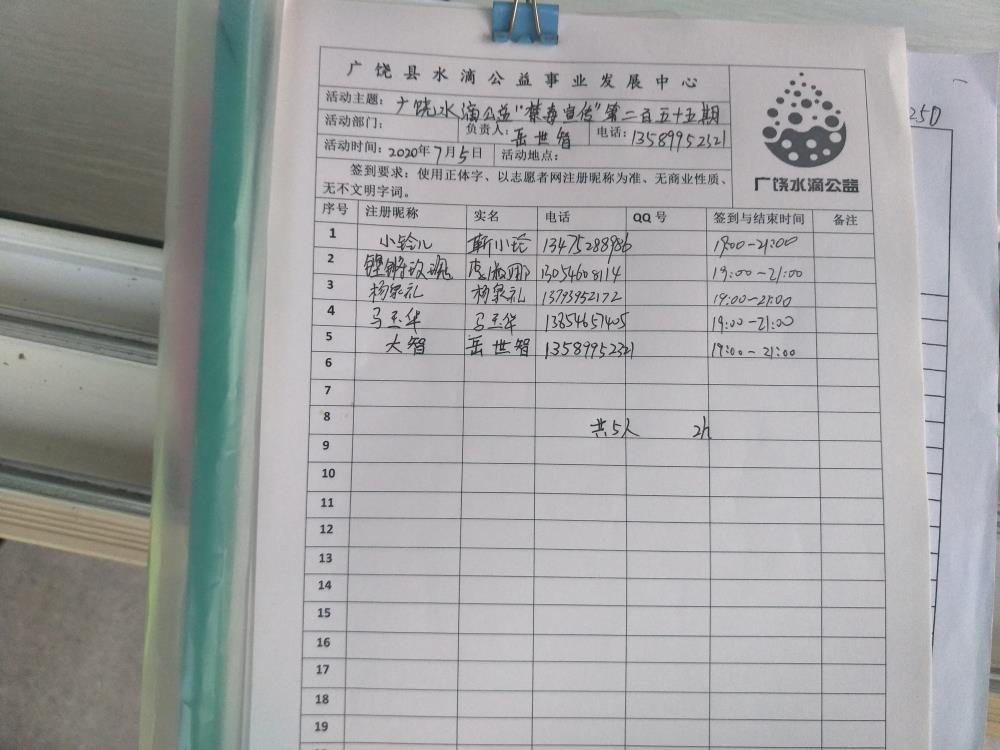 广饶县水滴公益事业发展中心
活动主题：广饶水滴公益"禁毒宣传"第二百五十五期
活动部门： 负责人：岳世智 电话：13589952321
活动时间：2020年7月5日 活动地点：
签到要求：使用正体字、以志愿者网注册昵称为准、无商业性质、
无不文明字词。
广饶水滴公益
序号 注册昵称 实名 电话 QQ号 签到与结束时间 备注
1 小铃儿 靳小玲 13475288986 19:00-21:00
2 铿锵玫瑰 13054608114 19:00-21:00
3 杨泉礼 杨泉礼 13793952172 19:00-21:00
4 马玉华 马玉华 13854657405 19:00-21:00
5 大智 岳世智 13589952321 19:00-21:00
6
7
8 共5人 2h
9
10
11
12
13
14
15
16
17
18
19
250